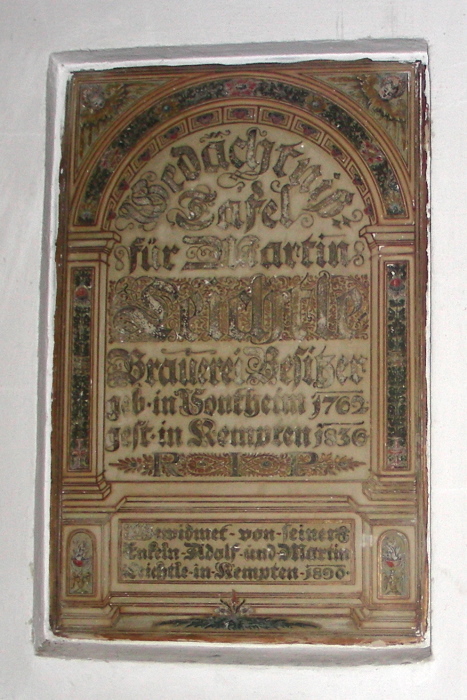 Gedächtnis-
Tafel
für Martin
Leichtle
Brauerei-Besitzer
geb·in Vontheim 1762
gest·in Kempten 1836
R I P
Gewidmet-von-seinen
Enkeln-Adolf-und Martin
Leichtle-in-Kempten-1890·